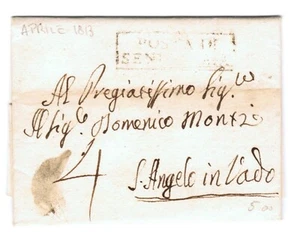 APRILE 1813
POSTA DI
Al Pregiatissimo Sig.ͬͤ
Il Sig.ͬ Domenico Montzi
4
S. Angelo in Vado